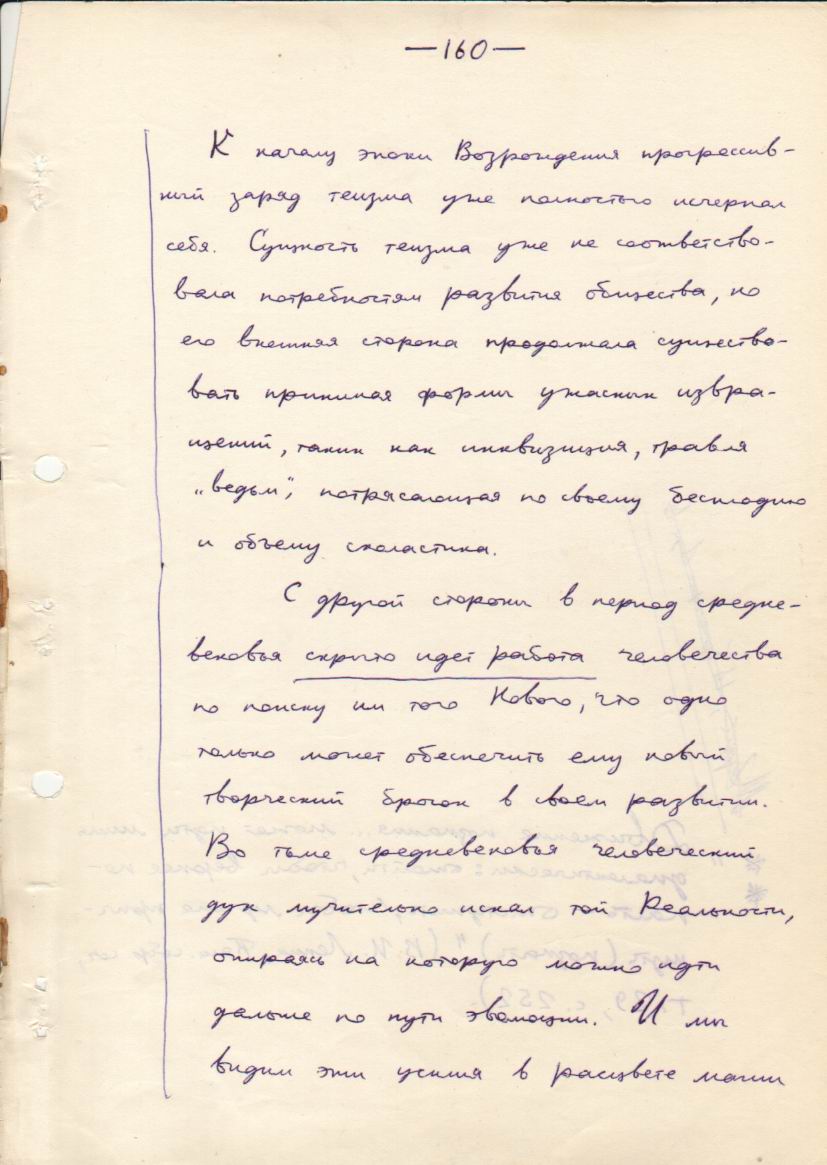 —160—
К началу эпохи Возрождения прогрессив-
ный заряд теизма уже полностью исчерпал
себя. Сущность теизма уже не соответство-
вала потребностям развития общества, но
его внешняя сторона продолжала существо-
вать принимая формы ужасных извра-
щений, таких как инквизиция, травля
„ведьм", потрясающая по своему бесплодию
и объему схоластика.
С другой стороны в период средне-
вековья скрыто идет работа человечества
по поиску им того Нового, что одно
только может обеспечить ему новый
творческий бросок в своем развитии.
Во тьме средневековья человеческий
дух мучительно искал той Реальности,
опираясь на которую можно идти
дальше по пути эволюции. И мы
видим эти усилия в расцвете магии